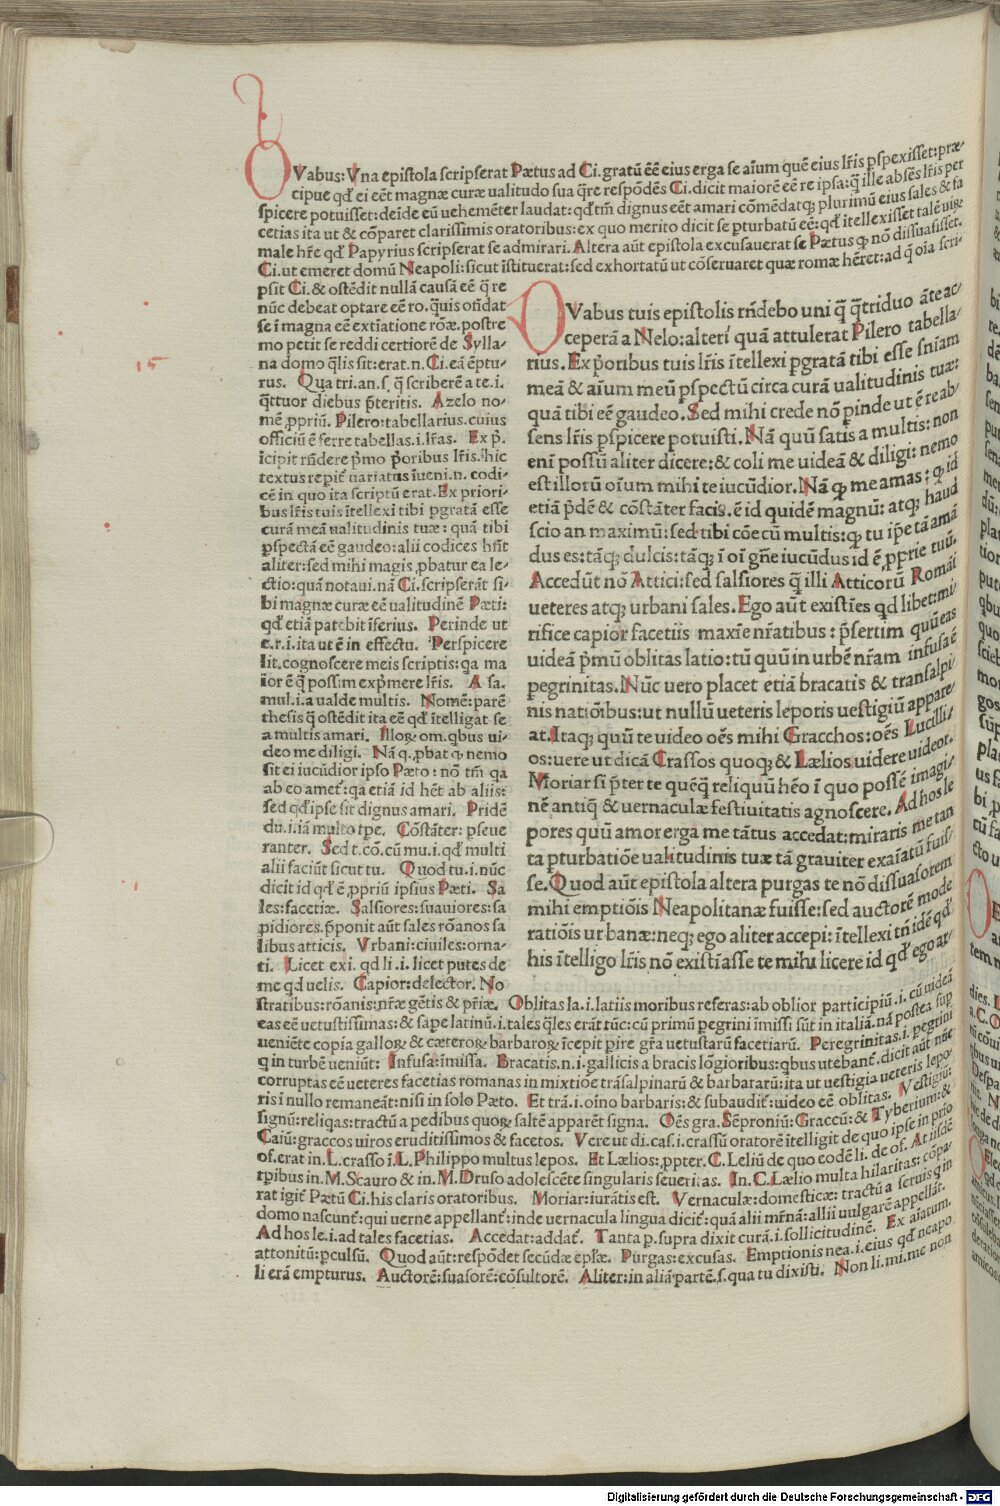 OVabus: Vna epistola scripserat Pætus ad Ci. gratū eē eius erga se aīum quē eius lr̄is ꝑspexisset: præ
cipue qđ ei eēt magnæ curæ ualitudo sua q̄re respōdēs Ci. dicit maiorē eē re ipsa: q̄ ille absēs lr̄is per
spicere potuisset: deīde eū uehemēter laudat: qđ tm̄ dignus eēt amari cōmēdatqꝫ plurimū eius sales & fa
cetias ita ut & cōparet clarissimis oratoribus: ex quo merito dicit se ꝑturbatū eē: qđ ītellexisset talē uigꝫ
male hr̄e qđ Papyrius scripserat se admirari. Altera aūt epistola excusauerat se Pætus ꝙ nō dissuasisset.
Ci. ut emeret domū Neapoli: sicut īstituerat: sed exhortatū ut cōseruaret quæ romæ hēret: ad q̄ oīa scri-
psit Ci. & ostēdit nullā causā eē q̄ re
nūc debeat optare eē ro. q̄uis ofīdat
se ī magna eē extiatione rōæ. postre
mo petit se reddi certiorē de Sylla-
na domo q̄lis sit: erat. n. Ci. eā ēptu-
rus. Qua tri. an. s. q̄ scriberē a te. i.
q̄ttuor diebus p̄teritis. Azelo no-
mē ꝓpriū. Pilero: tabellarius. cuius
officiū ē ferre tabellas. i. lr̄as. Ex p̄.
īcipit rn̄dere p̄mo p̄oribus lr̄is. hic
textus repit̄ uariatus īueni. n. codi-
cē in quo ita scriptū erat. Ex priori-
bus lr̄is tuis ītellexi tibi ꝑgratā esse
curā meā ualitudinis tuæ: quā tibi
ꝑspectā eē gaudeo: alii codices hn̄t
aliter: sed mihi magis ꝓbatur ea le-
ctio: quā notaui. nā Ci. scripserāt si-
bi magnæ curæ eē ualitudinē Pæti:
qđ etiā patebit īferius. Perinde ut
e. r. i. ita ut ē in effectu. Perspicere
lit. cognoscere meis scriptis: qa ma
ior ē q̄ possim exp̄mere lr̄is. A sa.
mul. i. a ualde multis. Nomē: parē
thesis q̄ ostēdit ita eē qđ ītelligat se
a multis amari. Illoꝝ om. qbus ui-
deo me diligi. Nā q. ꝓbat ꝙ nemo
sit ei iucūdior ipso Pæto: nō tm̄ qa
ab eo amet̄: qa etiā id hēt ab aliis:
sed qđ ipse sit dignus amari. Pridē
dū. i. iā multo tpe. Cōstāter: pseue
ranter. Sed t. cō. cū mu. i. qđ multi
alii faciūt sicut tu. Quod tu. i. nūc
dicit id qđ ē ꝓpriū ipsius Pæti. Sa
les: facetiæ. Salsiores: suauiores: sa
pidiores. p̄ponit aūt sales rōanos sa
libus atticis. Vrbani: ciuiles: orna-
ti. Licet exi. qd li. i. licet putes de
me qd uelis. Capior: delector. No
OVabus tuis epistolis rn̄debo uni q̄ q̄triduo āte ac-
ceperā a Nelo: alteri quā attulerat Pilero tabella-
rius. Ex p̄oribus tuis lr̄is ītellexi ꝑgratā tibi esse sn̄iam
meā & aīum meū ꝑspectū circa curā ualitudinis tuæ:
quā tibi eē gaudeo. Sed mihi crede nō ꝑinde ut ē re ab-
sens lr̄is ꝑspicere potuisti. Nā quū satis a multis: non
enī possū aliter dicere: & coli me uideā & diligi: nemo
est illorū oīum mihi te iucūdior. Nā ꝙ me amas: ꝙ id
etiā p̄dē & cōstāter facis. ē id quidē magnū: atqꝫ haud
scio an maximū: sed tibi cōe cū multis: ꝙ tu ip̄e tā amā
dus es: tāqꝫ dulcis: tāqꝫ ī oī gn̄e iucūdus id ē ꝓprie tuū.
Accedūt nō Attici: sed salsiores q̄ illi Atticorū Romāi
ueteres atqꝫ urbani sales. Ego aūt existīes qd libet: mi
rifice capior facetiis maxīe nr̄atibus: p̄sertim quū eas
uideā p̄mū oblitas latio: tū quū in urbē nr̄am infusa ē
pegrinitas. Nūc uero placet etiā bracatis & transalpi
nis natiōibus: ut nullū ueteris leporis uestigiū appare-
at. Itaqꝫ quū te uideo oēs mihi Gracchos: oēs Lucilli-
os: uere ut dicā Crassos quoqꝫ & Lælios uidere uideor.
Moriar si p̄ter te quēq̄ reliquū hēo ī quo possē imagi-
nē antiq̄ & uernaculæ festiuitatis agnoscere. Ad hos le
pores quū amor erga me tātus accedat: miraris me tan
ta ꝑturbatiōe ualitudinis tuæ tā grauiter exaīatū fuis-
se. Quod aūt epistola altera purgas te nō dissuasorem
mihi emptiōis Neapolitanæ fuisse: sed auctorē mode
ratiōis urbanæ: neqꝫ ego aliter accepi: ītellexi tn̄ idē qđ
his ītelligo lr̄is nō existīasse te mihi licere id qđ ego ar-
stratibus: rōanis: nr̄æ gētis & pr̄iæ. Oblitas la. i. latiis moribus referas: ab oblior participiū. i. cū uideā
eas eē uetustissimas: & sæpe latinū. i. tales q̄les erāt tūc: cū primū pegrini īmissi sūt in italiā. nā postea sup
ueniēte copia galloꝝ & cæteroꝝ barbaroꝝ īcepit ꝑire gr̄a uetustarū facetiarū. Peregrinitas. i. pegrini
q in turbē ueniūt: Infusa: īmissa. Bracatis. n. i. gallicis a bracis lōgioribus: qbus utebant̄. dicit aūt nūc
corruptas eē ueteres facetias romanas in mixtiōe trāsalpinarū & barbararū: ita ut uestigia ueteris lepo-
ris ī nullo remaneāt: nisi in solo Pæto. Et trā. i. oīno barbaris: & subaudit̄: uideo eē oblitas. Vestigiū:
signū: reliqas: tractū a pedibus quoꝝ saltē apparēt signa. Oēs gra. Sēproniū: Graccū: & Tyberium: &
Caiū: graccos uiros eruditissimos & facetos. Vere ut di. cas. i. crassū oratorē ītelligit de quo ipse in prio
of. erat in. L. crasso ī. L. Philippo multus lepos. Et Lælios: ꝓpter. C. Leliū de quo eodē li. de of. At iisdē
tꝑibus in. M. Scauro & in. M. Druso adolescēte singularis seueritas. In. C. Lælio multa hilaritas: cōpa-
rat igit̄ Pætū Ci. his claris oratoribus. Moriar: iurātis est. Vernaculæ: domesticæ: tractū a seruis q in
domo nascunt̄: qui uerne appellant̄: inde uernacula lingua dicit̄: quā alii mr̄nā: allii uulgarē appellāt.
Ad hos le. i. ad tales facetias. Accedat: addat̄. Tanta p. supra dixit curā. i. sollicitudinē. Ex aīatum.
attonitū: ꝑculsū. Quod aūt: respōdet secūdæ ep̄læ. Purgas: excusas. Emptionis nea. i. eius qđ neapo
li erā empturus. Auctorē: suasorē: cōsultorē. Aliter: in aliā partē. s. qua tu dixisti. Non li. mi. me non
15
Digitalisierung gefördert durch die Deutsche Forschungsgemeinschaft - DFG